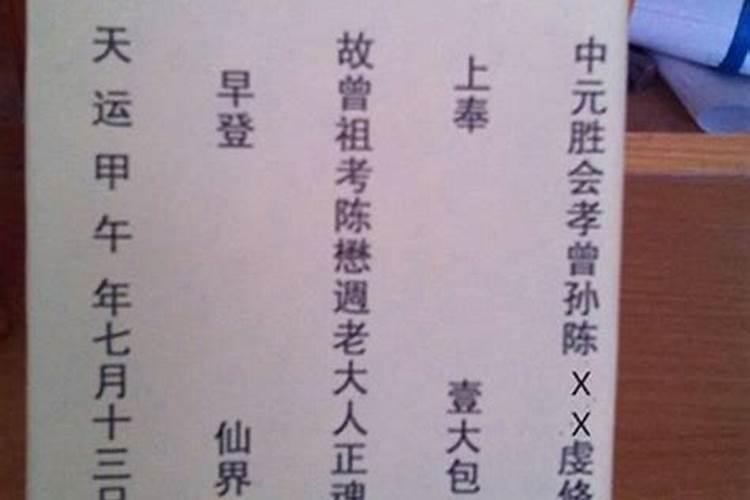 中元胜会孝曾孙陈XX虔修
上奉 壹大包
故曾祖考陈懋週老大人正魂
早登 仙界
天运甲午年七月十三日